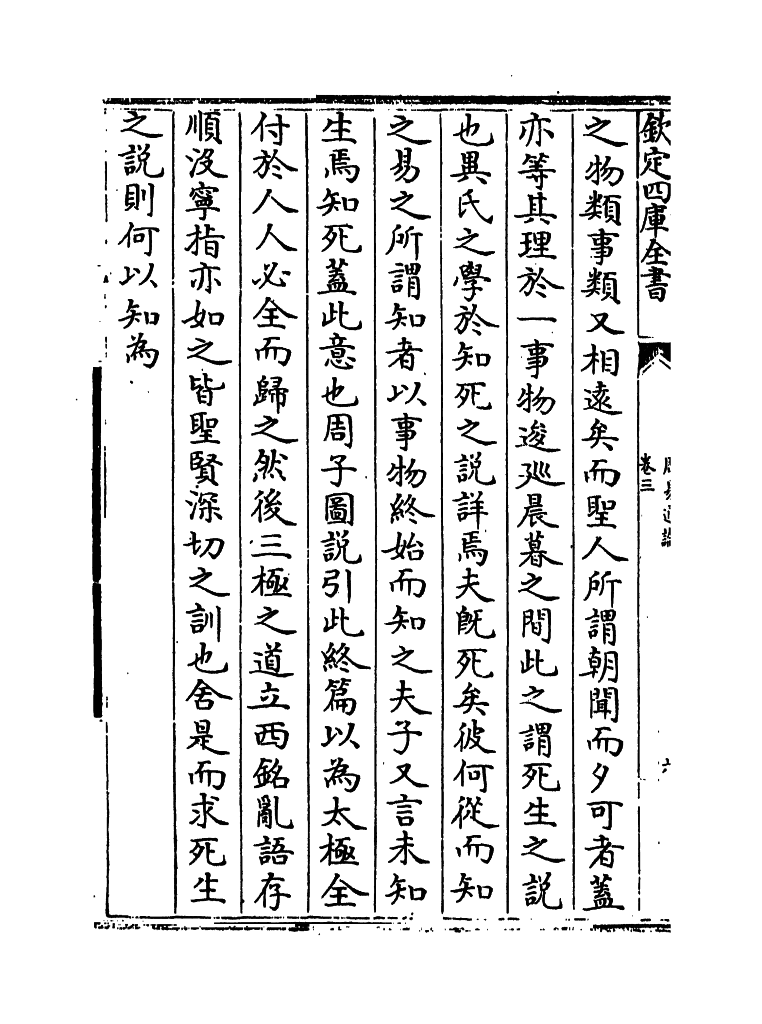 欽定四庫全書
卷三
之物類事類又相遠矣而聖人所謂朝聞而夕可者蓋
亦等其理於一事物逡廵晨暮之間此之謂死生之説
也異氏之學於知死之説詳焉夫旣死矣彼何從而知
之易之所謂知者以事物終始而知之夫子又言未知
生焉知死蓋此意也周子圖説引此終篇以為太極全
付於人人必全而歸之然後三極之道立西銘亂語存
順沒寧指亦如之皆聖賢深切之訓也舍是而求死生
之説則何以知為